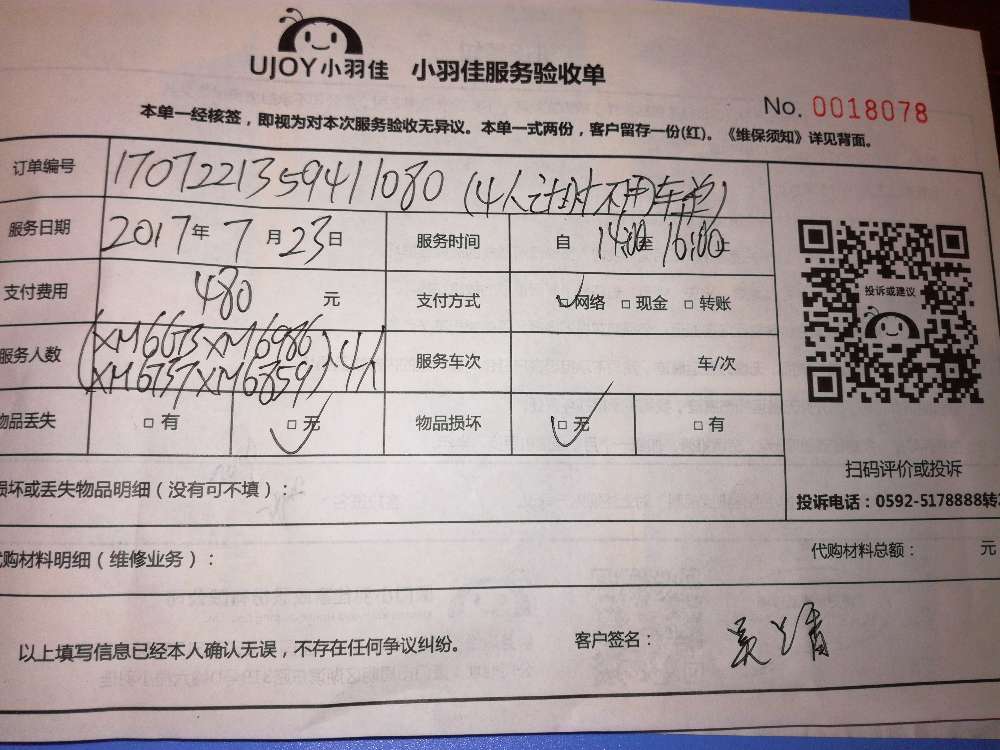 UJOY小羽佳 小羽佳服务验收单
No. 0018078
本单一经核签，即视为对本次服务验收无异议。本单一式两份，客户留存一份(红)。《维保须知》详见背面。
订单编号 1707221359411080 (4人计时不用车单)
服务日期 2017年7月23日 服务时间 自14:00至16:00止
支付费用 480元 支付方式 ☑网络 □现金 □转账
投诉或建议
服务人数 (XM6673XM6986 XM6737XM6859) 4人 服务车次 车/次
物品丢失 □有 ☑无 物品损坏 ☑无 □有
扫码评价或投诉
损坏或丢失物品明细（没有可不填）：
投诉电话：0592-5178888转
代购材料明细（维修业务）： 代购材料总额： 元
以上填写信息已经本人确认无误，不存在任何争议纠纷。 客户签名：